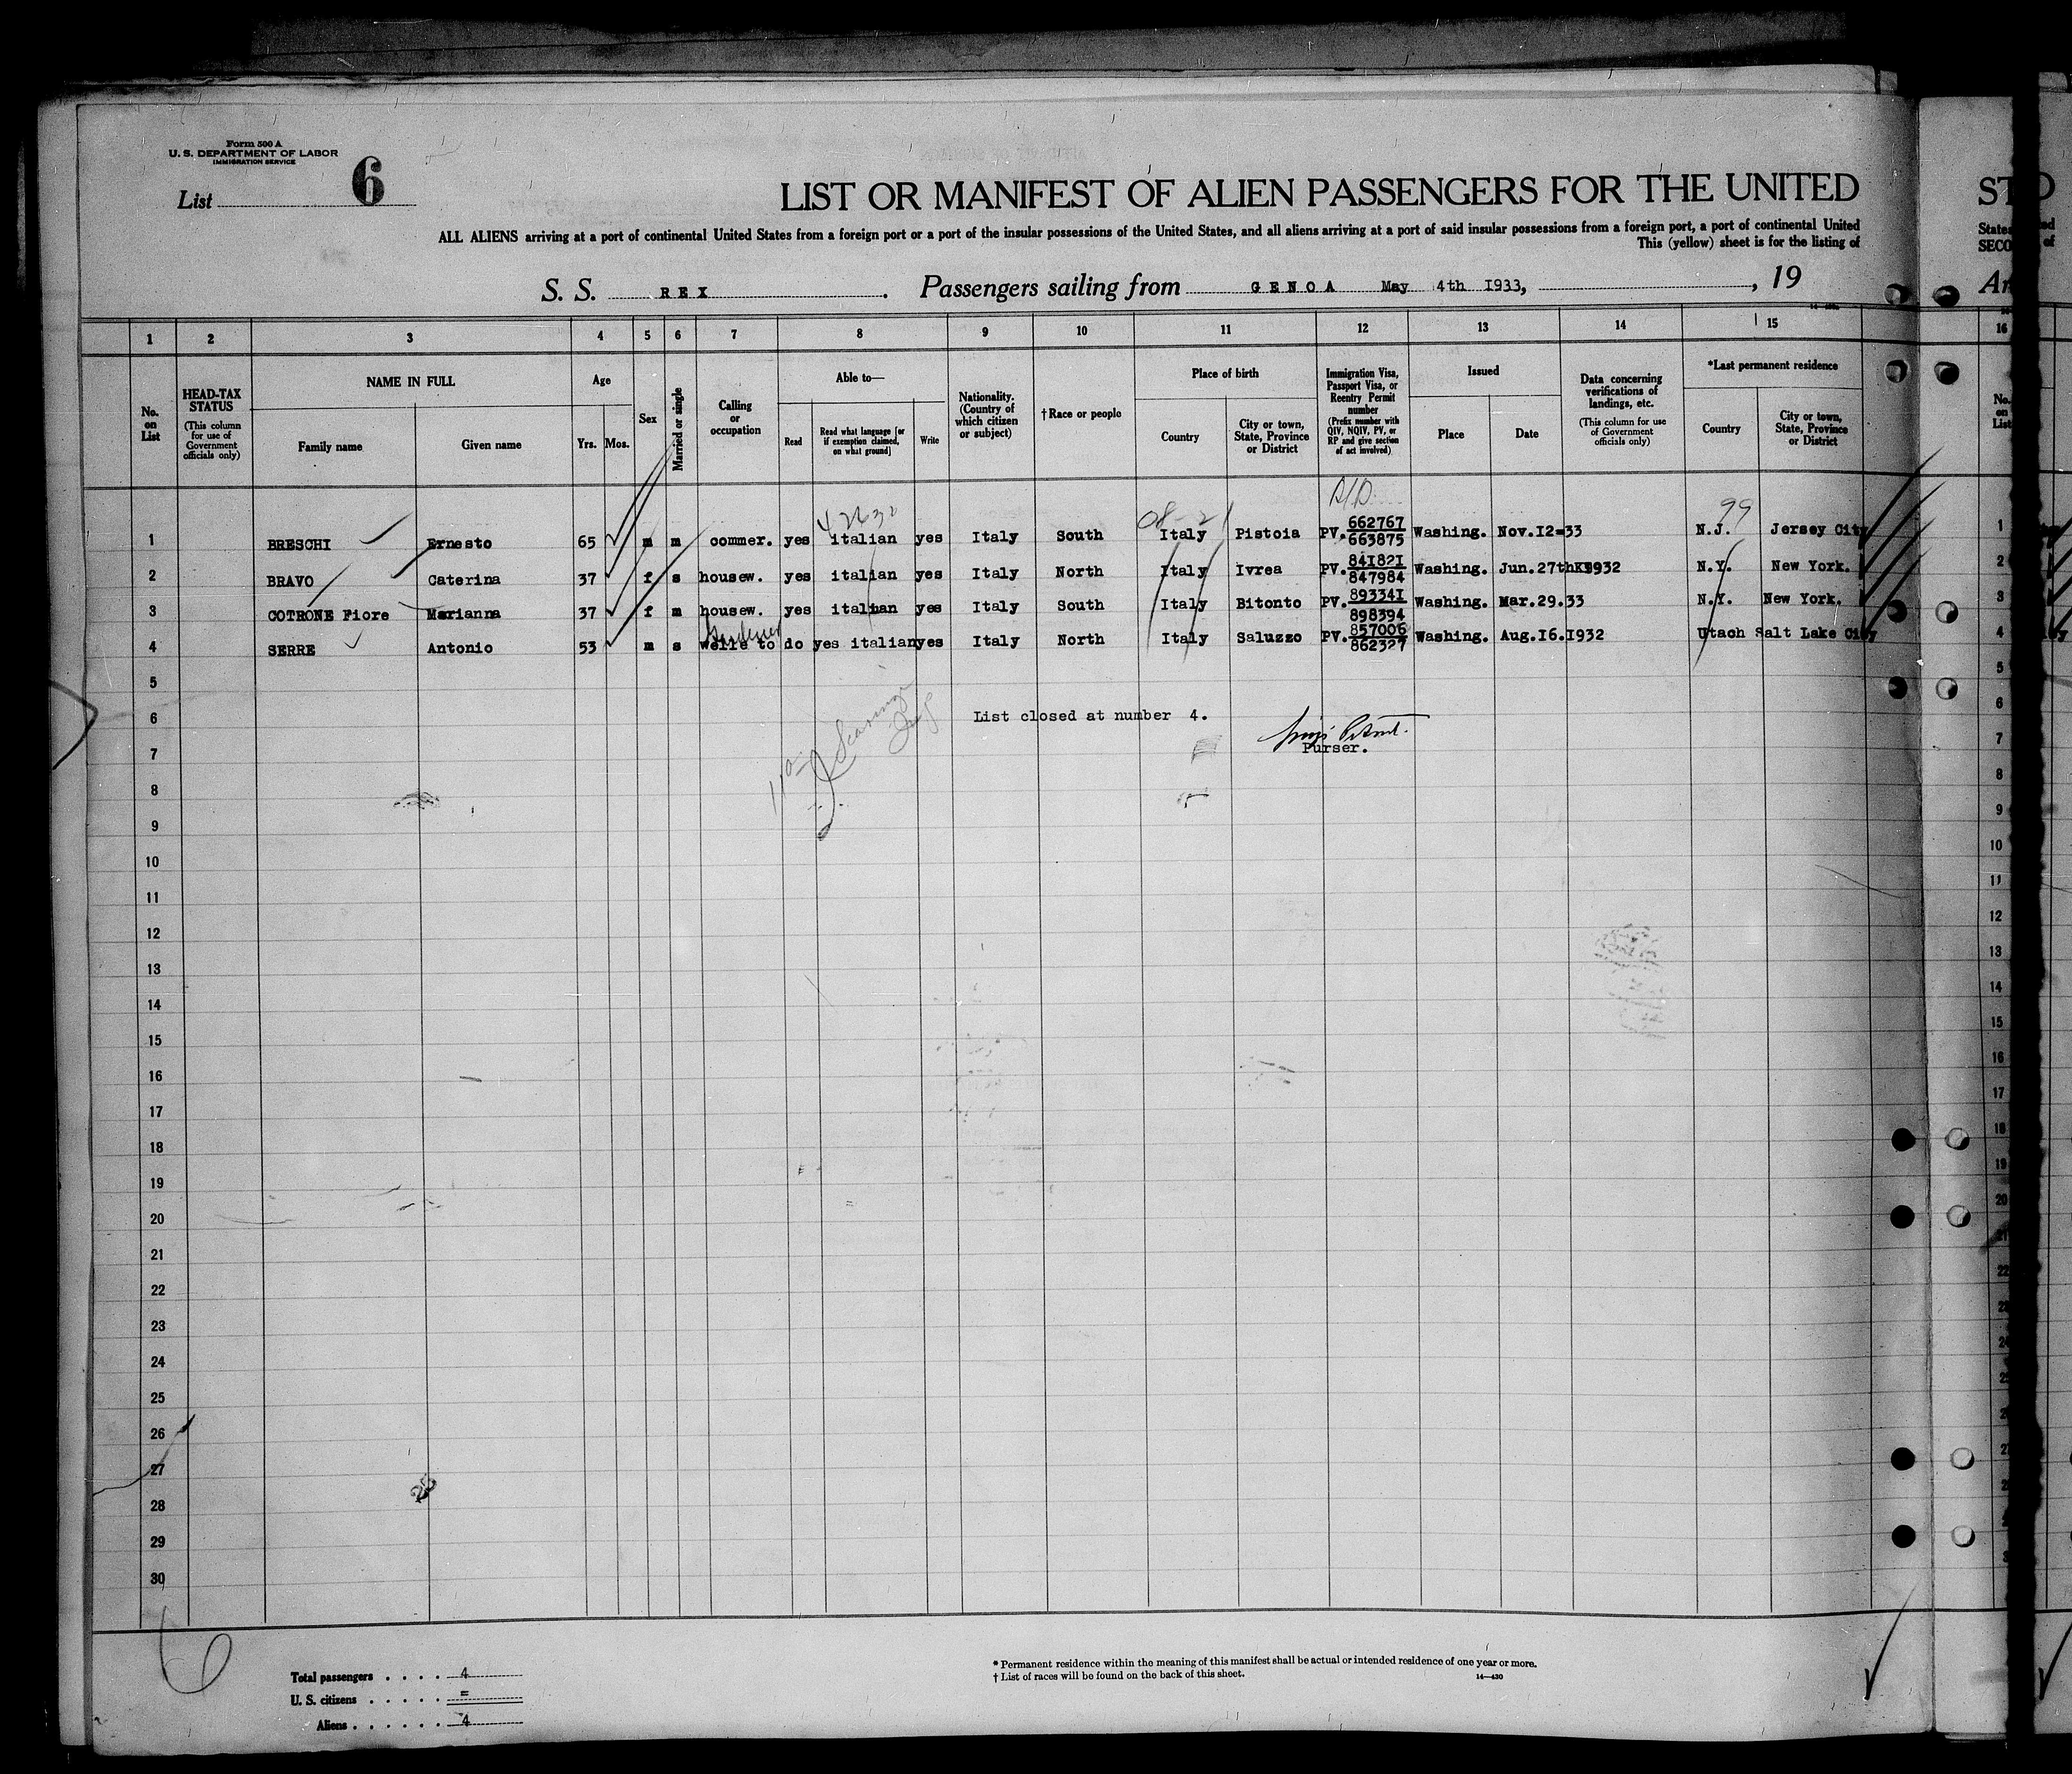 Form 500 A
U. S. DEPARTMENT OF LABOR
IMMIGRATION SERVICE
List 6
LIST OR MANIFEST OF ALIEN PASSENGERS FOR THE UNITED
ALL ALIENS arriving at a port of continental United States from a foreign port or a port of the insular possessions of the United States, and all aliens arriving at a port of said insular possessions from a foreign port, a port of continental United
This (yellow) sheet is for the listing of
S. S. REX. Passengers sailing from GENOA May 4th I933, , 19
1 2 3 4 5 6 7 8 9 10 11 12 13 14 15 16
No. on List
HEAD-TAX STATUS
(This column for use of Government officials only)
NAME IN FULL
Family name
Given name
Age
Yrs. Mos.
Sex
Married or single
Calling or occupation
Able to—
Read
Read what language [or if exemption claimed, on what ground]
Write
Nationality. (Country of which citizen or subject)
†Race or people
Place of birth
Country
City or town, State, Province or District
Immigration Visa, Passport Visa, or Reentry Permit number
(Prefix number with QIV, NQIV, PV, or RP and give section of act involved)
Issued
Place
Date
Data concerning verifications of landings, etc.
(This column for use of Government officials only)
*Last permanent residence
Country
City or town, State, Province or District
No. on List
99
1 BRESCHI Ernesto 65 m m commer. yes italian yes Italy South Italy Pistoia PV. 662767 663875 Washing. Nov.I2=33 N.J. Jersey City 1
2 BRAVO Caterina 37 f s housew. yes italian yes Italy North Italy Ivrea PV. 84I82I 847984 Washing. Jun.27th I932 N.Y. New York. 2
3 COTRONE Fiore Marianna 37 f m housew. yes italian yes Italy South Italy Bitonto PV. 89334I 898394 Washing. Mar.29.33 N.Y. New York. 3
4 SERRE Antonio 53 m s welle to do yes italian yes Italy North Italy Saluzzo PV. 857006 862327 Washing. Aug.I6.I932 Utach Salt Lake City 4
5
6 List closed at number 4.
7 Purser.
8
9
10
11
12
13
14
15
16
17
18
19
20
21
22
23
24
25
26
27
28
29
30
6
Total passengers . . . . 4
U. S. citizens . . . . . =
Aliens . . . . . . 4
* Permanent residence within the meaning of this manifest shall be actual or intended residence of one year or more.
† List of races will be found on the back of this sheet.
14—430